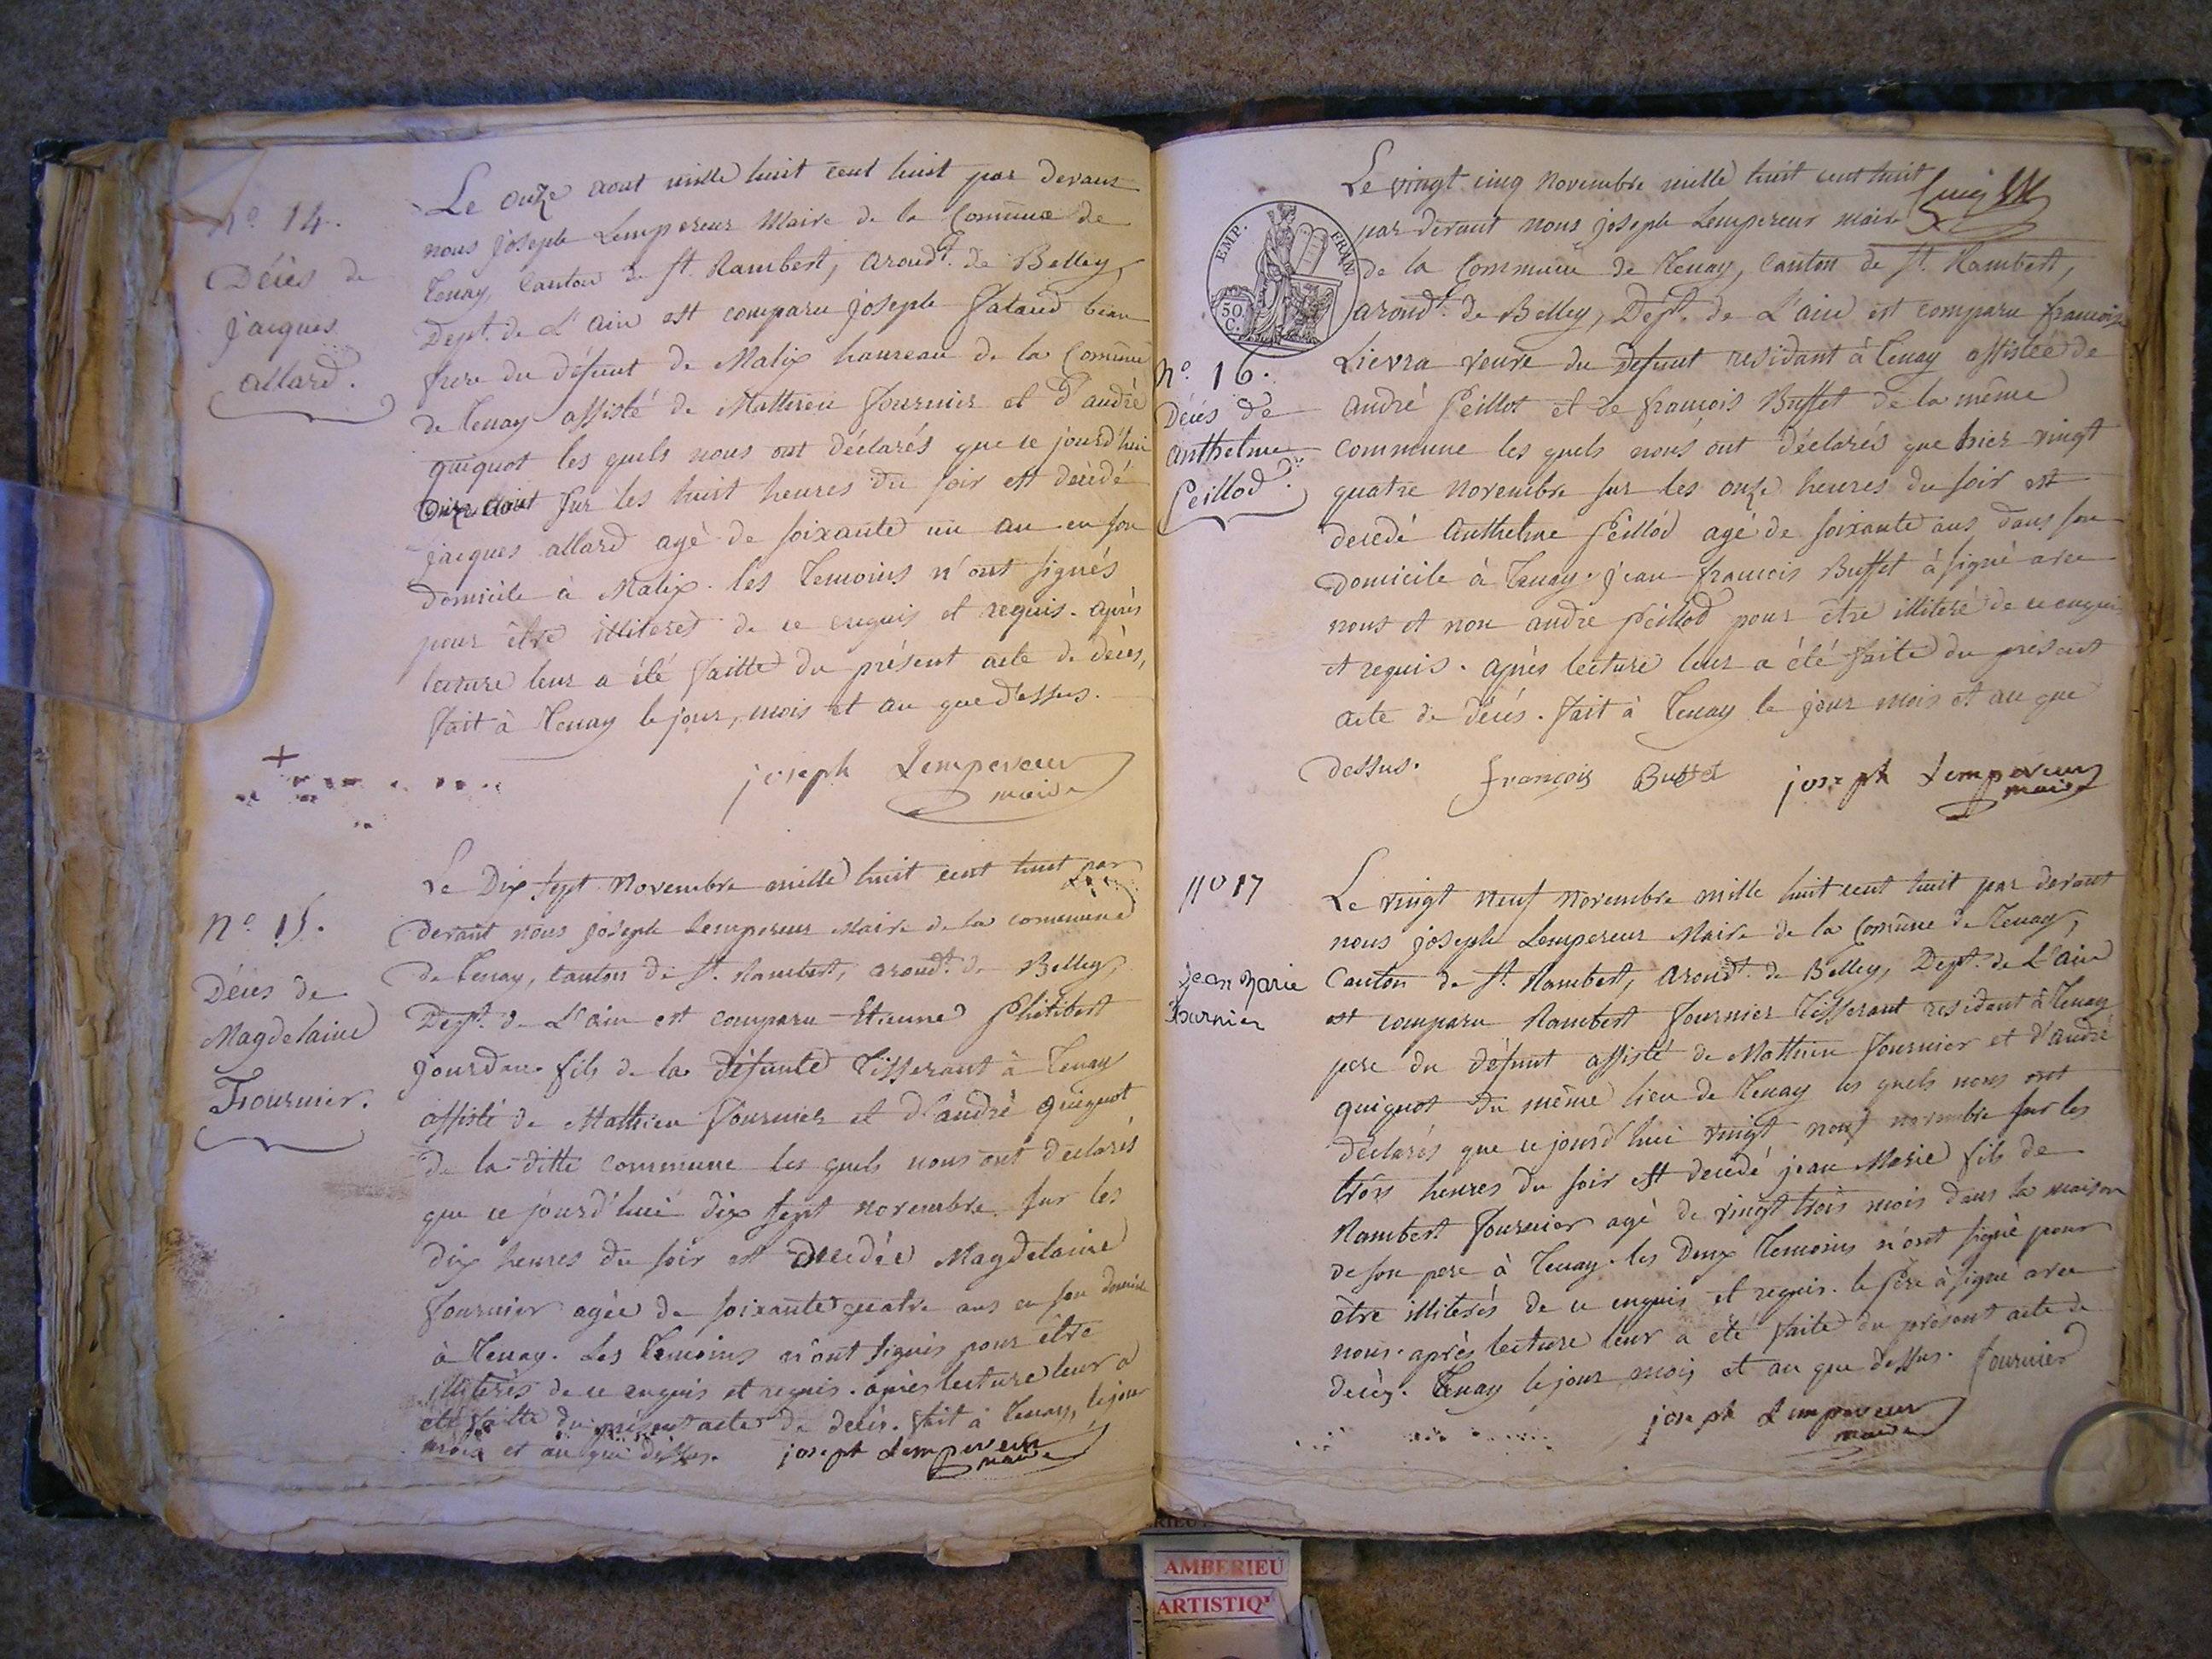 Le onze aout mille huit cent huit par devant
nous joseph Lempereur Maire de la Commune de
Tenay, Canton de St. Rambert, arondt. de Belley,
Dept. de L'ain est comparu joseph beau
frere du défunt de Malix haureau de la Commune
de Tenay assisté de Mathieu Fournier et d'andré
quiquot les quels nous ont déclarés que ce jourd'hui
onze aout sur les huit heures du soir est décédé
jacques allard agé de soixante un an en son
domicile à Malix. les temoins n'ont signés
pour être illiterés de ce enquis et requis. après
lecture leur a été faitte du présent acte de décès,
fait à Tenay le jour, mois et an que dessus.
joseph Lempereur
maire
No. 14.
Décès de
jacques
allard.
Le Dix sept Novembre mille huit cent huit par
devant nous joseph Lempereur Maire de la commune
de Tenay, canton de St. Rambert, arondt. de Belley,
Dept. de L'ain est comparu Etienne Philibert
jourdan fils de la défunte Tisserant à Tenay
assisté de Mathieu Fournier et d'andré quiquot
de la ditte commune les quels nous ont déclarés
que ce jourd'hui dix sept novembre sur les
dix heures du soir est décédée Magdelaine
Fournier agée de soixante quatre ans en son domicile
à Tenay. Les temoins n'ont signés pour être
illiterés de ce enquis et requis. après lecture leur a
été faitte du présent acte de décès. fait à Tenay, le jour
mois et an que dessus. joseph Lempereur
maire
No. 15.
Décès de
Magdelaine
Fournier.
Le vingt cinq Novembre mille huit cent huit
par devant nous joseph Lempereur maire
de la Commune de Tenay, Canton de St. Rambert,
arondt. de Belley, Dept. de L'ain est comparu francoise
Lievra veuve du defunt residant à Tenay assistée de
andré Peillot et de francois Buffet de la même
commune les quels nous ont déclarés que hier vingt
quatre novembre sur les onze heures du soir est
decedé Anthelme Peillod agé de soixante ans dans son
domicile à Tenay. jean francois Buffet à signé avec
nous et non andré Peillod pour être illiteré de ce enquis
et requis. après lecture leur a été faite du présent
acte de décès. fait à Tenay le jour mois et an que
dessus. françois Buffet joseph Lempereur
maire
EMP. FRAN.
50
C.
No. 16.
Décès de
Anthelme
Peillod.
Le vingt neuf Novembre mille huit cent huit par devant
nous joseph Lempereur Maire de la Commune de Tenay,
Canton de St. Rambert, arondt. de Belley, Dept. de L'ain
est comparu Rambert Fournier Tisserant resident à Tenay
pere du défunt assisté de Mathieu Fournier et d'andré
quiquot du même lieu de Tenay les quels nous ont
déclarés que ce jourd'hui vingt neuf novembre sur les
trois heures du soir est decédé jean Marie fils de
Rambert Fournier agé de vingt trois mois dans la maison
de son pere à Tenay. les deux temoins n'ont signé pour
être illiterés de ce enquis et requis. le père à signé avec
nous. après lecture leur a été faite du présent acte de
decès. Tenay le jour mois et an que dessus. fournier
joseph Lempereur
maire
No 17
Jean Marie
Fournier
AMBERIEU
ARTISTIQ